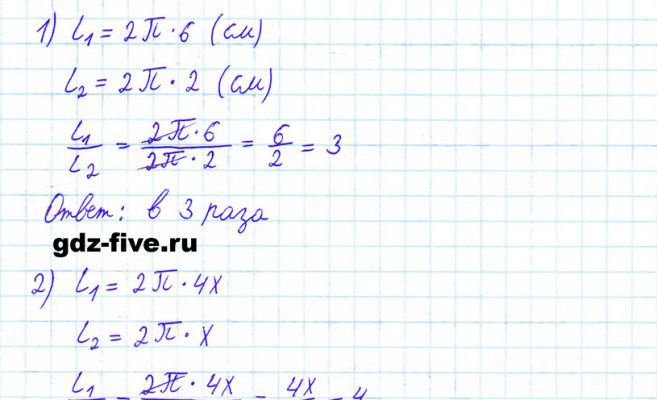 1) L₁ = 2π · 6 (см)
L₂ = 2π · 2 (см)
L₁/L₂ = 2π · 6 / 2π · 2 = 6/2 = 3
Ответ: в 3 раза
gdz-five.ru
2) L₁ = 2π · 4x
L₂ = 2π · x
L₁ = 2π · 4x = 4x = 4